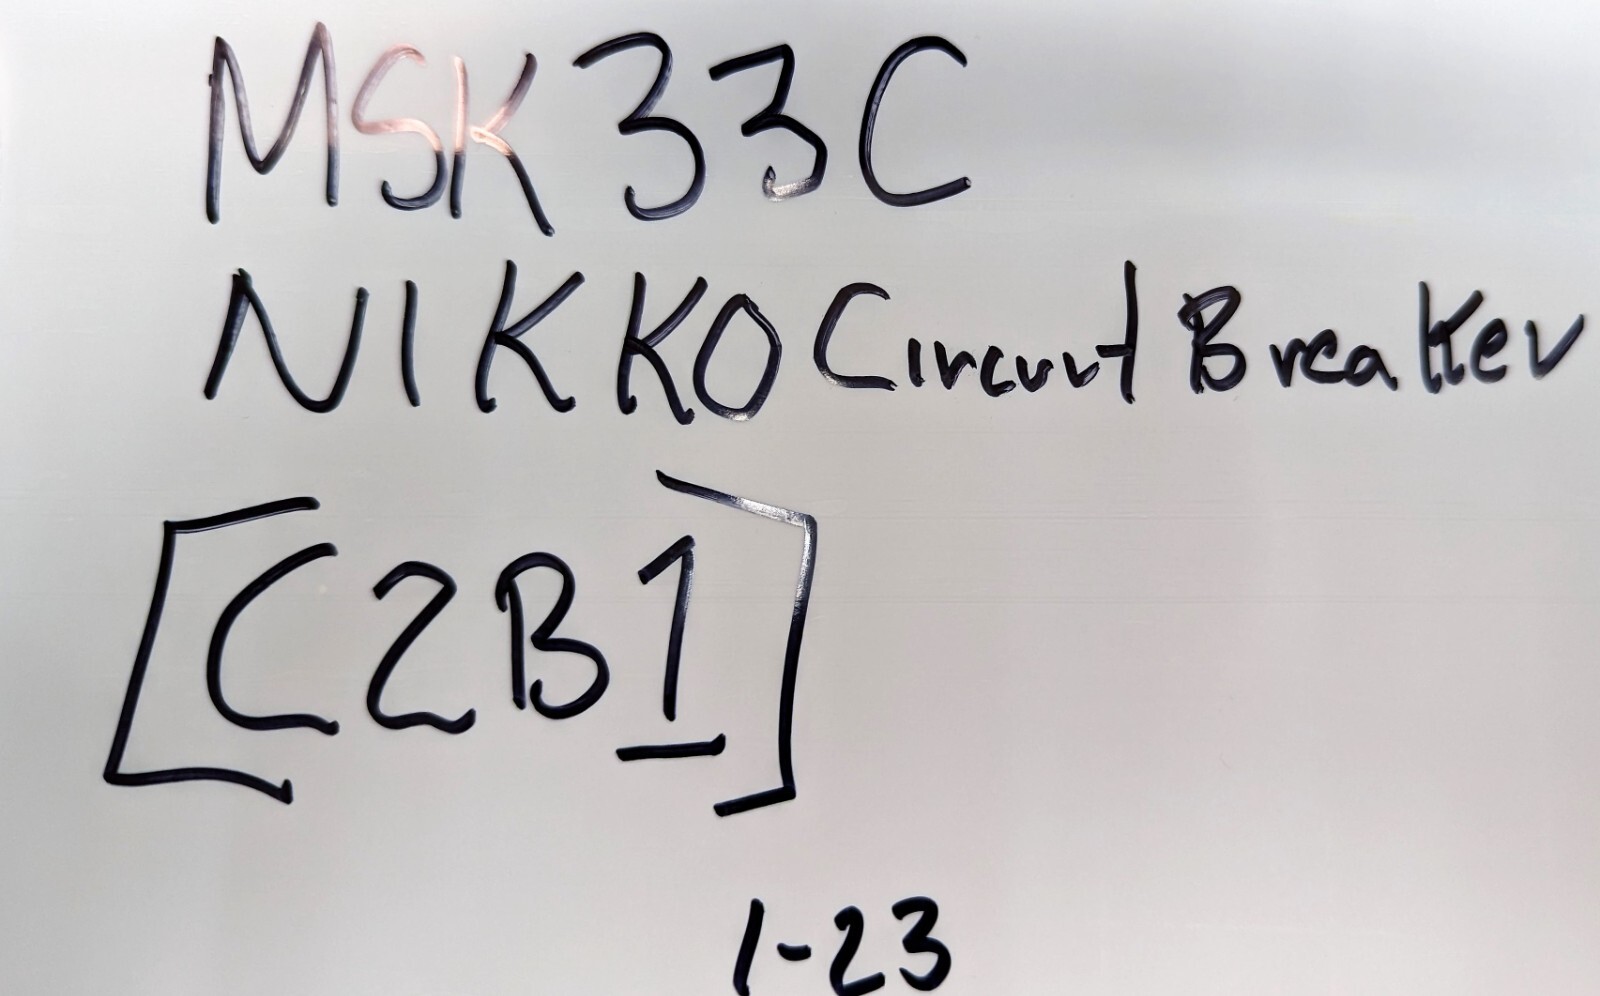 MSK33C
NIKKO Circuit Breaker
[C2B1]
1-23